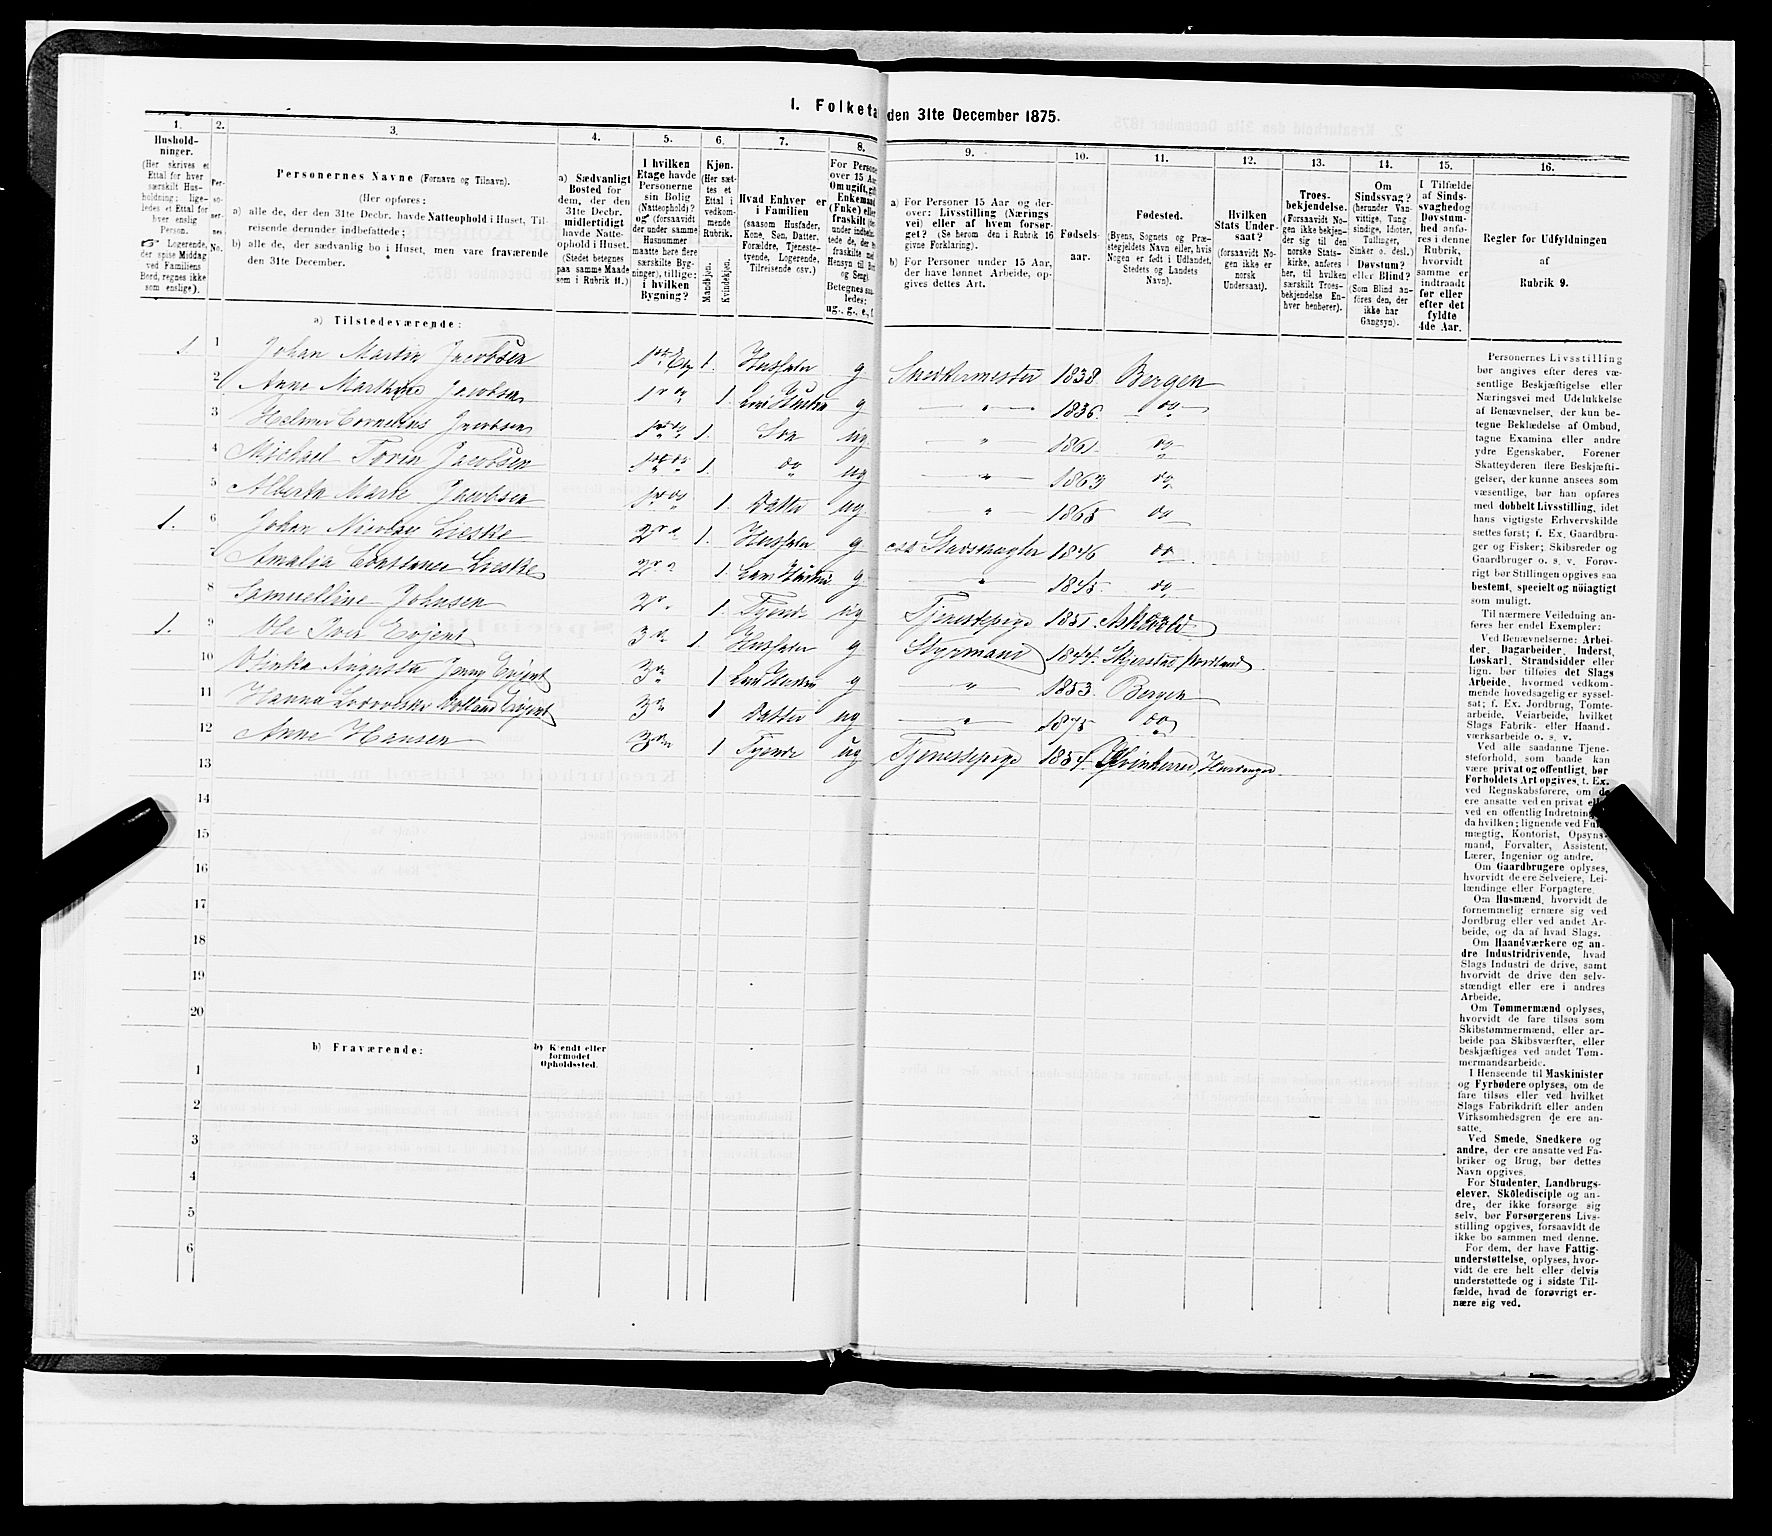 I. Folketæ den 31te December 1875.
1. 2. 3. 4. 5. 6. 7. 8. 9. 10. 11. 12. 13. 14. 15. 16.
Hushold-
ninger.
(Her skrives et
Ettal for hver
særskilt Hus-
holdning; lige-
ledes et Ettal for
hver enslig
Person.
☞ Logerende,
der spise Middag
ved Familiens
Bord, regnes ikke
som enslige).
Per-
so-
ner-
nes
No.
Personernes Navne (Fornavn og Tilnavn).
(Her opføres:
a) alle de, der den 31te Decbr. havde Natteophold i Huset, Til-
reisende derunder indbefattede;
b) alle de, der sædvanlig bo i Huset, men vare fraværende
den 31te December.
a) Sædvanligt
Bosted for
dem, der den
31te Decbr.
midlertidigt
havde Natte-
ophold i Huset.
(Stedet betegnes
paa samme Maade
som i Rubrik 11.)
I hvilken
Etage havde
Personerne
sin Bolig
(Natteophold)?
og (forsaavidt
der under samme
Husnummer
maatte høre flere
særskilte Byg-
ninger), tillige:
i hvilken
Bygning?
Kjøn.
(Her sæt-
tes et
Ettal i
vedkom-
mende
Rubrik.
Mandkjøn.
Kvindekjøn.
Hvad Enhver er
i Familien
(saasom Husfader,
Kone, Søn, Datter,
Forældre, Tjeneste-
tyende, Logerende,
Tilreisende osv.)
For Personer
over 15 Aar
Om ugift, gift,
Enkemand
(Enke) eller
fraskilt
Betegnes saa-
ledes:
ug., g., e., f.
a) For Personer 15 Aar og der-
over: Livsstilling (Nærings
vei) eller af hvem forsør-
get? (Se herom den i Rubrik 16
givne Forklaring).
b) For Personer under 15 Aar,
der have lønnet Arbeide, op-
gives dettes Art.
Fødsels-
aar.
Fødested.
(Byens, Sognets og Præ-
stegjeldets Navn eller, hvis
Nogen er født i Udlandet,
Stedets og Landets
Navn).
Hvilken
Stats Under-
saat?
(forsaavidt No-
gen ikke er
norsk
Undersaat).
Troes-
bekjendelse.
(Forsaavidt No-
gen ikke bekjen-
der sig til den
norske Stats-
kirke, anføres
her, til hvilken
særskilt Troes-
bekjendelse En-
hver henhører).
Om
Sindssvag?
(herunder Van-
vittige, Tung-
sindige, Idioter,
Tullinger,
Sinker o. desl.)
Døvstum?
eller Blind?
(Som Blind an-
føres den, der
ikke har
Gangsyn).
I Tilfælde
af Sinds-
svaghed og
Døvstum-
hed anfø-
res i denne
Rubrik,
hvorvidt
samme er
indtraadt
før eller
efter det
fyldte
4de Aar.
Regler for Udfyldningen
af
Rubrik 9.
a) Tilstedeværende:
1. 1 Johan Martin Jacobsen 1ste Etg 1. Husfader g Snedkermester 1838. Bergen
2 Anne Marthine Jacobsen 1 g — " — 1836. do
3 Cornelius Jacobsen 1. Søn ug. " 1861. do
4 Michael Jacobsen 1. do ug " 1863 do
5 Alberta Marie Jacobsen 1. Datter ug " 1865 do
1. 6 Johan Nicolay Lieske 1. Husfader g 1846 do
7 Amalia Lieske 1. g " 1845 do
8 Samuelline Johnsen 1. Tyende ug Tjenestepige 1851 Askvold
1. 9 Ole Iver Evjent 1 Husfader g Styrmand 1844. Skjerstad Nordland
10 Augusta Jenny Evjent 1 g " 1853. Bergen
11 Hanna Evjent 1 Datter ug — " — 1875 do
12 Anne Hansen 1 Tyende ug Tjenestepige 1854. Hardanger
13
14
15
16
17
18
19
20
b) Fraværende: b) Kjendt eller
formodet
Opholdssted.
1
2
3
4
5
6
Personernes Livsstilling
bør angives efter deres væ-
sentlige Beskjæftigelse eller
Næringsvei med Udelukkelse
af Benævnelser, der kun be-
tegne Beklædelse af Ombud,
tagne Examina eller andre
ydre Egenskaber. Forener
Skatteyderen flere Beskjæfti-
gelser, der kunne ansees som
væsentlige, bør han opføres
med dobbelt Livsstilling, idet
hans vigtigste Erhvervskilde
sættes først; f. Ex. Gaardbru-
ger og Fisker; Skibsreder og
Gaardbruger o. s. v. Forøv-
rigt bør Stillingen opgives saa
bestemt, specielt og nöiagtigt
som muligt.
Til nærmere Veiledning an-
føres her endel Exempler:
Ved Benævnelserne: Arbei-
der, Dagarbeider, Inderst,
Løskarl, Strandsidder eller
lign. bør tilføies det Slags
Arbeide, hvormed vedkom-
mende hovedsagelig er syssel-
sat; f. Ex. Jordbrug, Tomte-
arbeide, Veiarbeide, hvilket
Slags Fabrik- eller Haand-
værksarbeide o. s. v.
Ved alle saadanne Tjene-
steforhold, som baade kan
være privat og offentligt, bør
Forholdets Art opgives, t. Ex.
ved Regnskabsførere, om de
ere ansatte ved en privat eller
ved en offentlig Indretning
da hvilken; lignende ved Fuld-
mægtig, Kontorist, Opsyns-
mand, Forvalter, Assistent,
Lærer, Ingeniør og andre.
Om Gaardbrugere oplyses,
hvorvidt de ere Selveiere, Lei-
lændinge eller Forpagtere.
Om Husmænd, hvorvidt de
fornemmelig ernære sig ved
Jordbrug eller ved andet Ar-
beide, og da af hvad Slags.
Om Haandværkere og an-
dre Industridrivende, hvad
Slags Industri de drive, samt
hvorvidt de drive den selv-
stændigt eller ere i andres
Arbeide.
Om Tømmermænd oplyses,
hvorvidt de fare tilsøs som
Skibstømmermænd, eller ar-
beide paa Skibsværfter, eller
beskjæftiges ved andet Tøm-
mermandsarbeide.
I Henseende til Maskinister
og Fyrbødere oplyses, om de
fare tilsøs eller ved hvilket
Slags Fabrikdrift eller anden
Virksomhedsgren de ere an-
satte.
Ved Smede, Snedkere og
andre, der ere ansatte ved Fa-
briker og Brug, bør dettes
Navn opgives.
For Studenter, Landbrugs-
elever, Skôledisciple og an-
dre, der ikke forsørge sig
selv, bør Forsørgerens Livs-
stilling opgives, forsaavidt de
ikke bo sammen med denne.
For dem, der have Fattig-
understøttelse, oplyses, hvor-
vidt de ere helt eller delvis
understøttede og i sidste Til-
fælde, hvad de forøvrigt er-
nære sig ved.